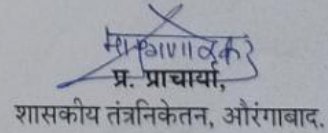 प्र. प्राचार्या,
शासकीय तंत्रनिकेतन, औरंगाबाद.